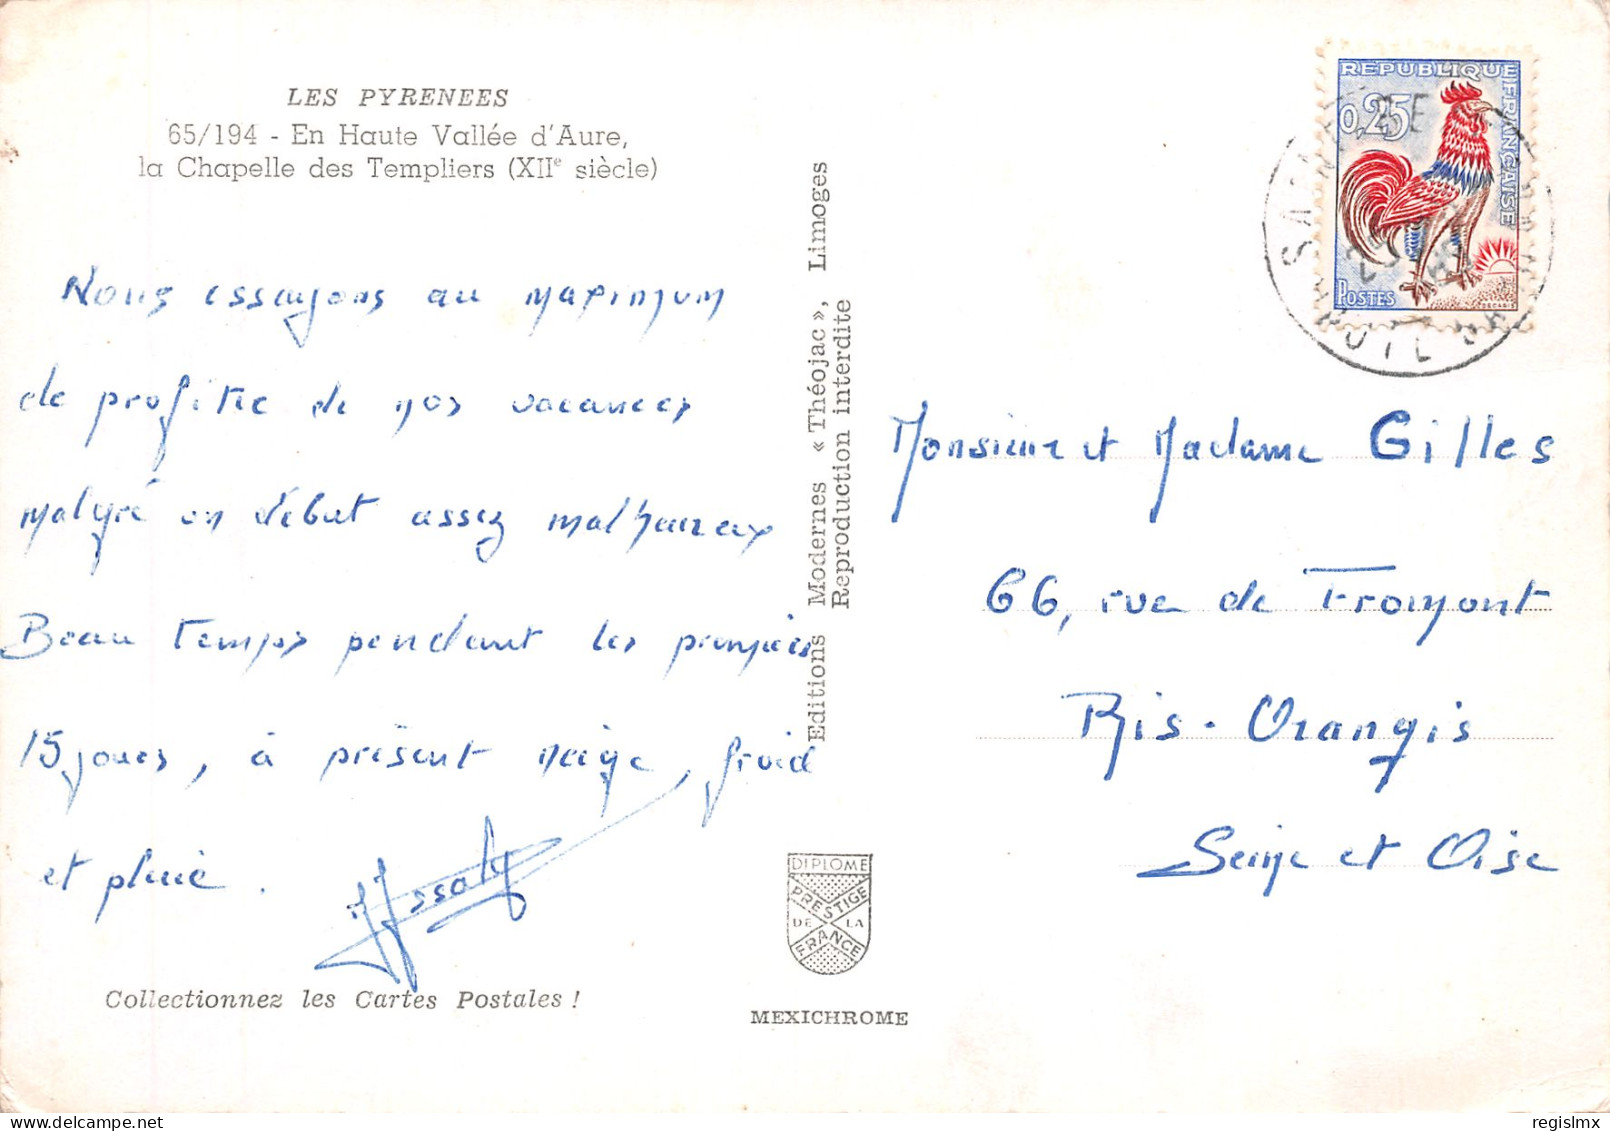 LES PYRENEES
65/194 - En Haute Vallée d'Aure,
la Chapelle des Templiers (XIIe siècle)
Nous essayons au maximum
de profiter de nos vacances
malgré un début assez malheureux
Beau temps pendant les premiers
15 jours, à présent neige, froid
et pluie.
Collectionnez les Cartes Postales !
Editions Modernes « Théojac », Limoges
Reproduction interdite
DIPLOME
PRESTIGE
DE LA
FRANCE
MEXICHROME
REPUBLIQUE FRANÇAISE
0,25
POSTES
Monsieur et Madame Gilles
66, rue de Fromont
Ris-Orangis
Seine et Oise
regislmx